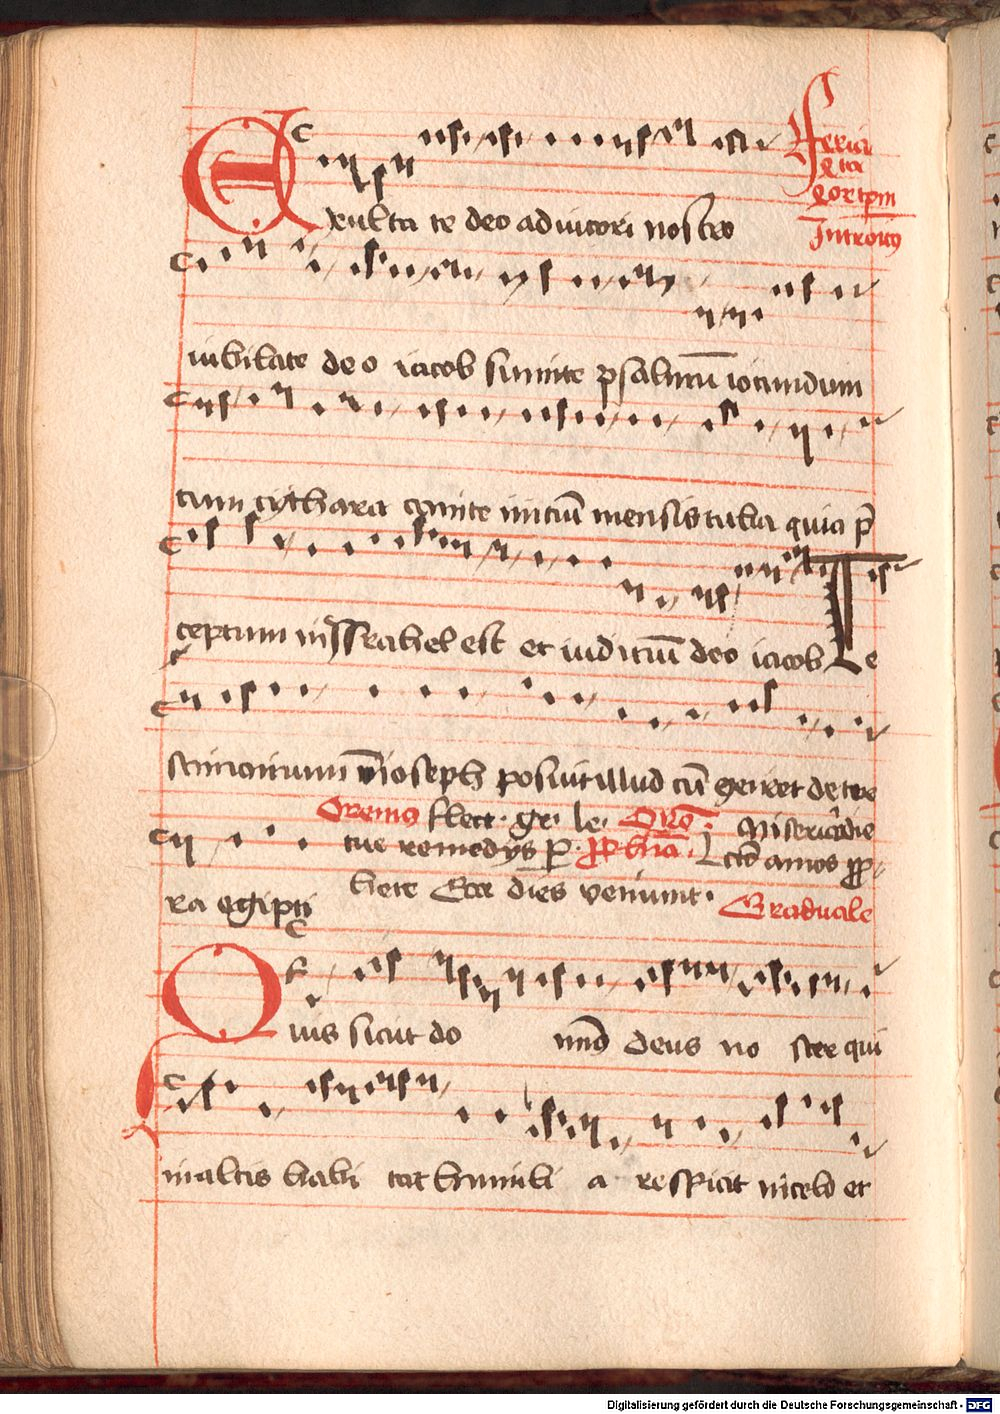 Feria
qta
qortpm
Introitus
Exulta te deo adiutori nostro
iubilate deo iacob sumite psalmū iocundum
cum cythara canite iniciū mensis tuba quia p̄
ceptum in Israhel est et iudiciū deo iacob Te
stimonium in ioseph posuit illud cū exiret de ter
Oremus flect· ge· le· Oro· Misericordie
tue remedys p̄· Lctō amos pro
ra egipti
bete Ecce dies veniunt· Graduale
Quis sicut do mīnꝰ deus no ster qui
in altis habi tat humili a respicit in celo et
Digitalisierung gefördert durch die Deutsche Forschungsgemeinschaft - DFG